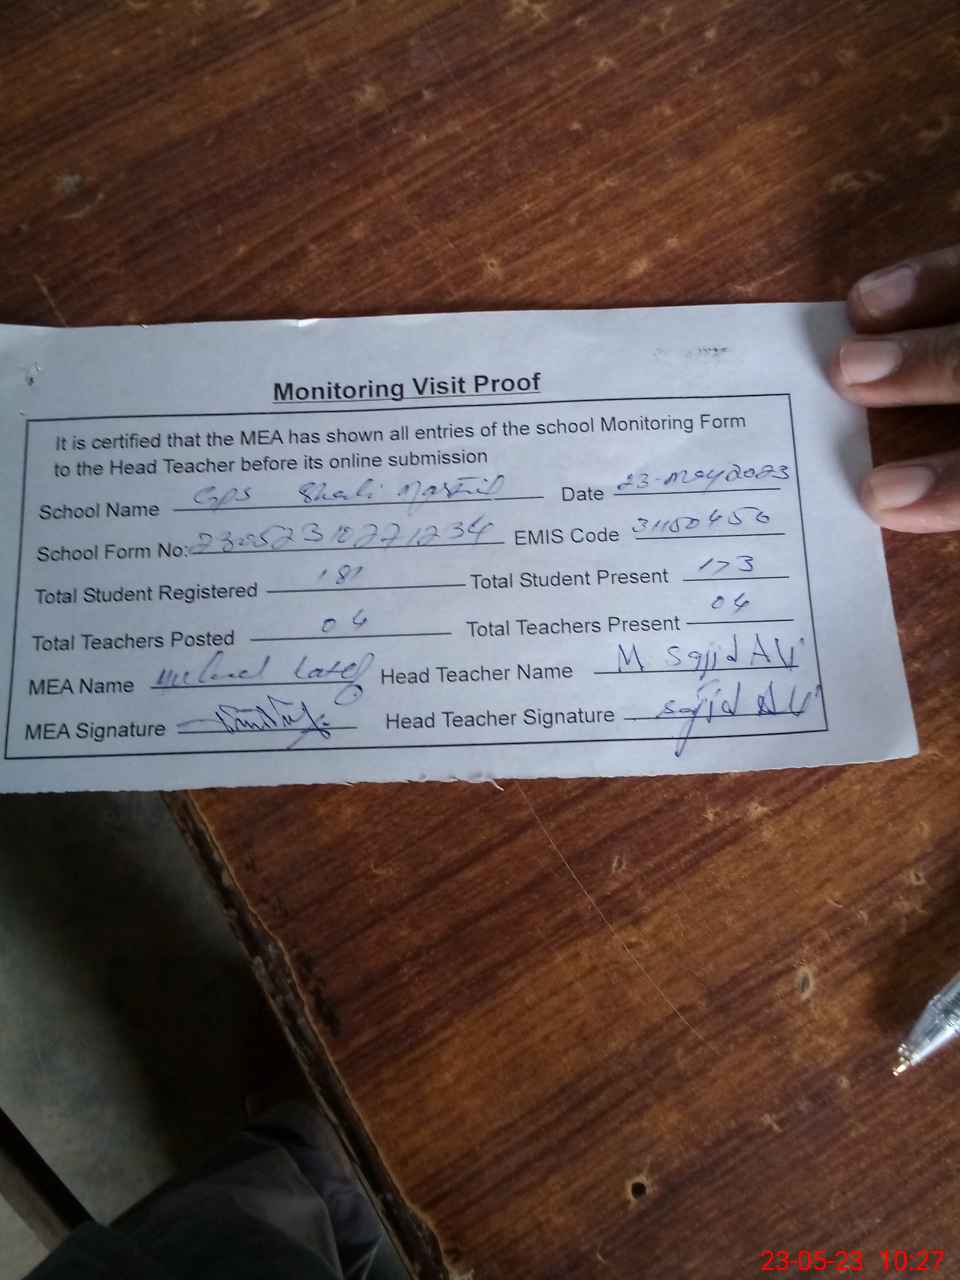 Monitoring Visit Proof
It is certified that the MEA has shown all entries of the school Monitoring Form
to the Head Teacher before its online submission
School Name GPS Date 23-May2023
School Form No: EMIS Code 31150450
Total Student Registered 181 Total Student Present 173
Total Teachers Posted 04 Total Teachers Present 04
MEA Name Head Teacher Name M Sajid Ali
MEA Signature Head Teacher Signature Sajid Ali
23-05-23 10:27